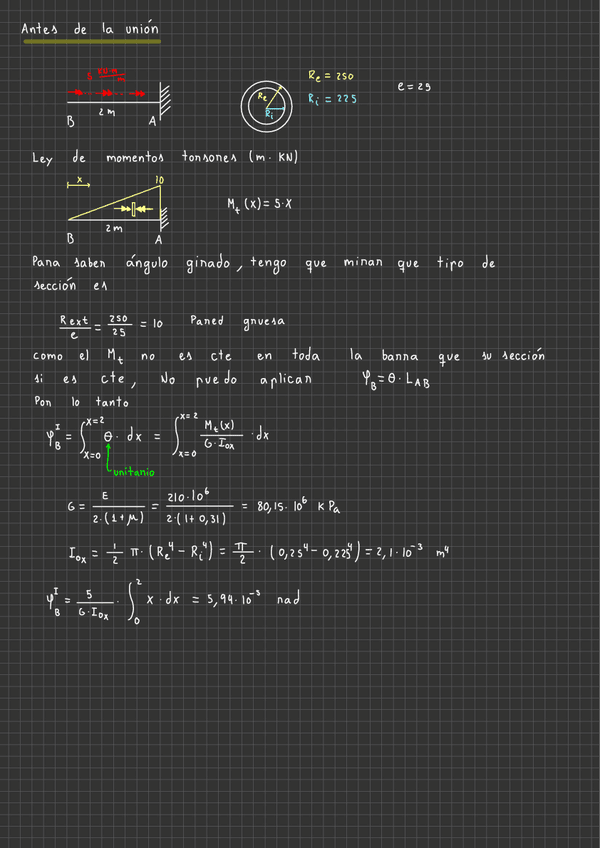 Antes de la unión
5 kN·m/m
Re = 250
Ri = 225
e = 25
2 m
B A
Re
Ri
Ley de momentos torsores (m·KN)
x
10
Mt (x) = 5·X
2 m
B A
Para saber ángulo girado, tengo que mirar que tipo de
sección es
Rext/e = 250/25 = 10 Pared gruesa
como el Mt no es cte en toda la barra que su sección
si es cte, No puedo aplicar φB = θ·LAB
Por lo tanto
φB^I = ∫_{x=0}^{x=2} θ· dx = ∫_{x=0}^{x=2} Mt(x)/(G·Iox) ·dx
unitario
G = E/(2·(1+μ)) = 210·10^6/(2·(1+0,31)) = 80,15·10^6 KPa
Iox = 1/2 π·(Re^4 − Ri^4) = π/2 · (0,25^4 − 0,225^4) = 2,1·10^-3 m^4
φB^I = 5/(G·Iox) · ∫_0^2 x·dx = 5,94·10^-5 rad